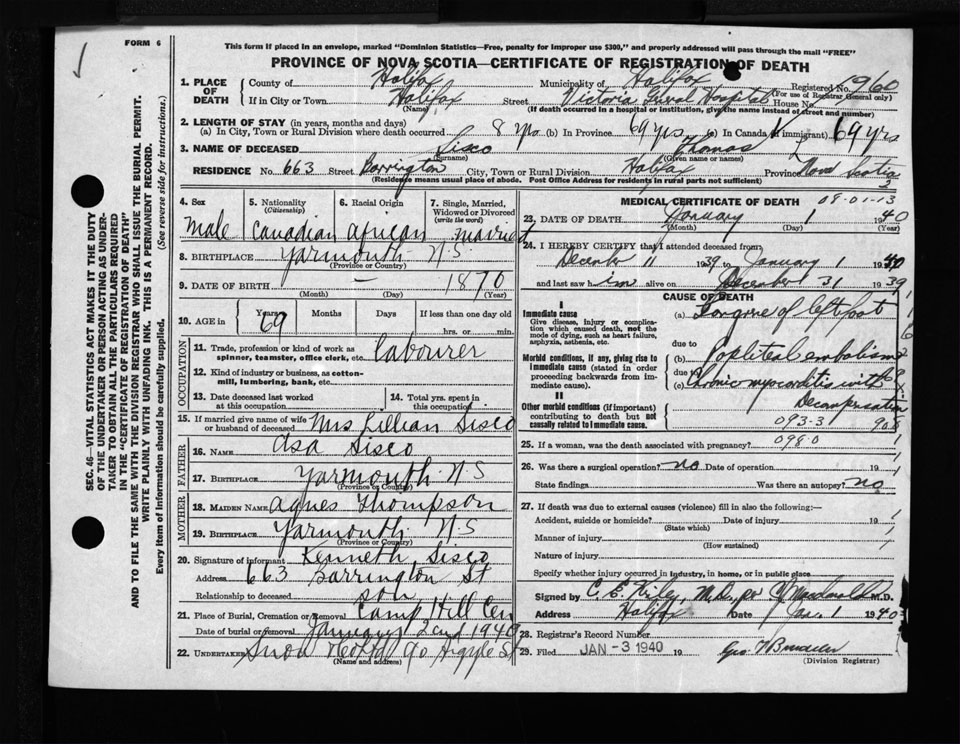 FORM 6
This form if placed in an envelope, marked "Dominion Statistics—Free, penalty for improper use $300," and properly addressed will pass through the mail "FREE"
PROVINCE OF NOVA SCOTIA—CERTIFICATE OF REGISTRATION OF DEATH
1. PLACE OF DEATH County of Halifax Municipality of Halifax Registered No. 1960
(For use of Registrar General only)
If in City or Town Halifax Street Victoria Hospital House No.
(Name) (If death occurred in a hospital or institution, give the name instead of street and number)
2. LENGTH OF STAY (in years, months and days)
(a) In City, Town or Rural Division where death occurred 8 yrs (b) In Province 69 yrs (c) In Canada (if immigrant) 69 yrs
3. NAME OF DECEASED Sisco Thomas
(Surname) (Given name or names)
RESIDENCE No. 663 Street Barrington City, Town or Rural Division Halifax Province Nova Scotia
(Residence means usual place of abode. Post Office Address for residents in rural parts not sufficient)
SEC. 46—VITAL STATISTICS ACT MAKES IT THE DUTY
OF THE UNDERTAKER OR PERSON ACTING AS UNDER-
TAKER "TO OBTAIN ALL THE PARTICULARS REQUIRED
IN THE "CERTIFICATE OF REGISTRATION OF DEATH"
AND TO FILE THE SAME WITH THE DIVISION REGISTRAR WHO SHALL ISSUE THE BURIAL PERMIT.
WRITE PLAINLY WITH UNFADING INK. THIS IS A PERMANENT RECORD.
Every item of information should be carefully supplied. (See reverse side for instructions.)
4. Sex 5. Nationality (Citizenship) 6. Racial Origin 7. Single, Married, Widowed or Divorced (write the word)
Male Canadian African Married
8. BIRTHPLACE Yarmouth N.S
(Province or Country)
9. DATE OF BIRTH — 1870
(Month) (Day) (Year)
10. AGE in Years Months Days If less than one day
69 hrs. or min.
OCCUPATION
11. Trade, profession or kind of work as spinner, teamster, office clerk, etc. labourer
12. Kind of industry or business, as cotton-mill, lumbering, bank, etc.
13. Date deceased last worked at this occupation 14. Total yrs. spent in this occupation
15. If married give name of wife or husband of deceased Mrs Lillian Sisco
FATHER
16. NAME Asa Sisco
17. BIRTHPLACE Yarmouth N.S
(Province or Country)
MOTHER
18. MAIDEN NAME Agnes Thompson
19. BIRTHPLACE Yarmouth N.S
(Province or Country)
20. Signature of informant Kenneth Sisco
Address 663 Barrington St
Relationship to deceased son
21. Place of Burial, Cremation or Removal Camp Hill Cem
Date of burial or removal January 2nd 1940
22. UNDERTAKER Snow 90 Argyle St
(Name and address)
MEDICAL CERTIFICATE OF DEATH
08-01-13
23. DATE OF DEATH January 1 1940
(Month) (Day) (Year)
24. I HEREBY CERTIFY that I attended deceased from
December 11 1939 to January 1 1940
and last saw him alive on December 31 1939
CAUSE OF DEATH
I
Immediate cause
Give disease, injury or complication which caused death, not the mode of dying, such as heart failure, asphyxia, asthenia, etc.
(a) Gangrene of left foot
due to
Morbid conditions, if any, giving rise to immediate cause (stated in order proceeding backwards from immediate cause).
(b) Popliteal embolism
due to
(c) Chronic myocarditis with
Decompensation
II
Other morbid conditions (if important) contributing to death but not causally related to immediate cause.
093-31
098.0
25. If a woman, was the death associated with pregnancy?
26. Was there a surgical operation? no Date of operation 19
State findings Was there an autopsy? no
27. If death was due to external causes (violence) fill in also the following:—
Accident, suicide or homicide? Date of injury 19
(State which)
Manner of injury
(How sustained)
Nature of injury
Specify whether injury occurred in industry, in home, or in public place
Signed by C. E. Kiley, M.D., per Macdonald M.D.
Address Halifax Date Jan. 1 1940
28. Registrar's Record Number
29. Filed JAN -3 1940 19 Geo
(Division Registrar)